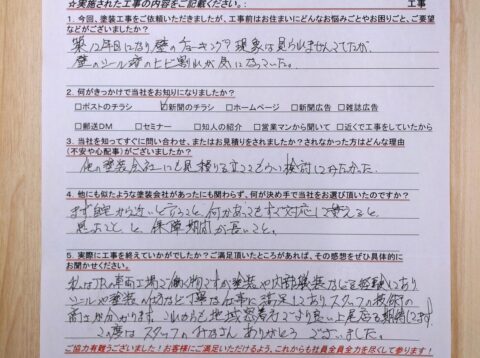 ☆実施された工事の内容をご記載ください。: 工事
1. 今回、塗装工事をご依頼いただきましたが、工事前はお住まいにどんなお悩みごとやお困りごと、ご要望
などがございましたか?
築12年目になり壁のチョーキング?現象は見られませんでしたが、
壁のシール部のヒビ割れが気になっていた。
2. 何がきっかけで当社をお知りになりましたか?
□ポストのチラシ ☑新聞のチラシ □ホームページ □新聞広告 □雑誌広告
□郵送DM □セミナー □知人の紹介 □営業マンから聞いて □近くで工事をしていたから
3. 当社を知ってすぐに問い合わせ、またはお見積りをされましたか?されなかった方はどんな理由
(不安や心配事)がございましたか?
他の塗装会社にも見積りを立ててもらい検討してみたかった。
4. 他にも似たような塗装会社があったにも関わらず、何が決め手で当社をお選び頂いたのですか?
まず自宅から近いと言うこと、何かあってもすぐ対応して貰えると
思ったことと、保障期間が長いこと。
5. 実際に工事を終えていかがでしたか?ご満足頂いたところがあれば、その感想をぜひ具体的に
お聞かせください。
の車両工場で働く物ですが塗装や内部艤装なども経験しており
シールや塗装の仕方など丁寧な仕事に満足しておりスタッフの技術の
高さが分かります。これからも地域密着でより良い上尾店を期待してます。
この度はスタッフのみなさんありがとうございました。
ご協力有難うございました!お客様にご満足いただけるよう、これからも社員全員全力を尽くして参ります!